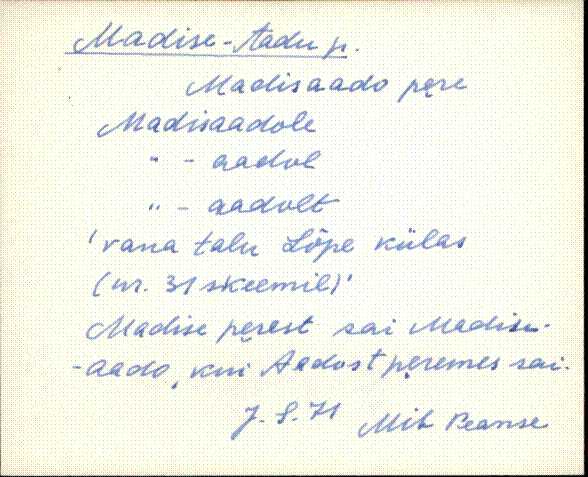 Madise-Aadu p.
Madisaado pęre
Madisaadole
" - aadol
" - aadolt
'vana talu Lõpe külas
(nr. 31 skeemil)'
Madise pęrest sai Madisu-
-aado, kui Aadost pęremes sai.
J. S. 71